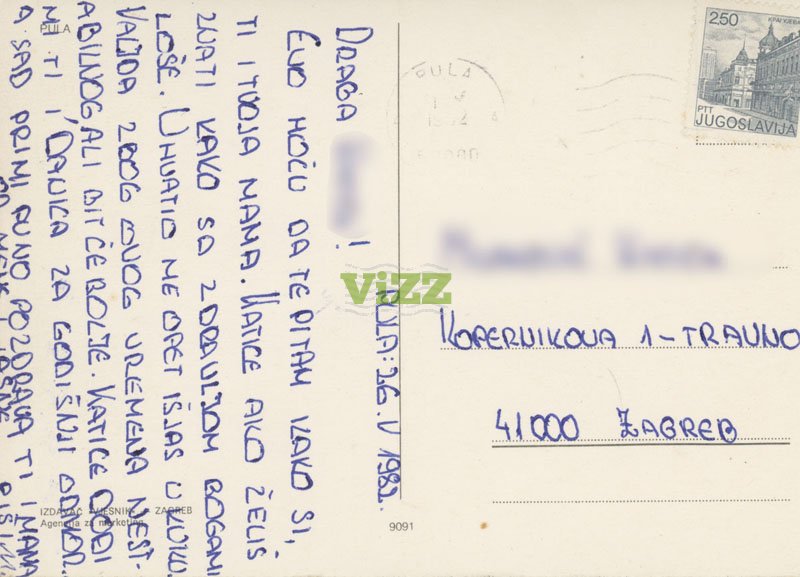 PULA
DRAGA
!
EVO HOĆU DA TE PITAM KAKO SI,
TI I TVOJA MAMA. KATICE AKO ŽELIŠ
ZNATI KAKO SA ZDRAVLJOM BOGAMI
LOŠE. UHVATIO ME OPET IŠJAS U KUKU.
VALJDA ZBOG OVOG VREMENA NEST-
ABILNOG, ALI BIT ĆE BOLJE. KATICE DOĐI
MI TI I DANICA ZA GODIŠNJI ODMOR..
A SAD PRIMI PUNO POZDRAVA TI I MAMA
PULA: 26. V 1982.
IZDAVAČ VJESNIK ZAGREB
Agencija za marketing
9091
PULA
2,50
PTT
JUGOSLAVIJA
ViZZ
KOPERNIKOVA 1-TRAVNO
41000 ZAGREB